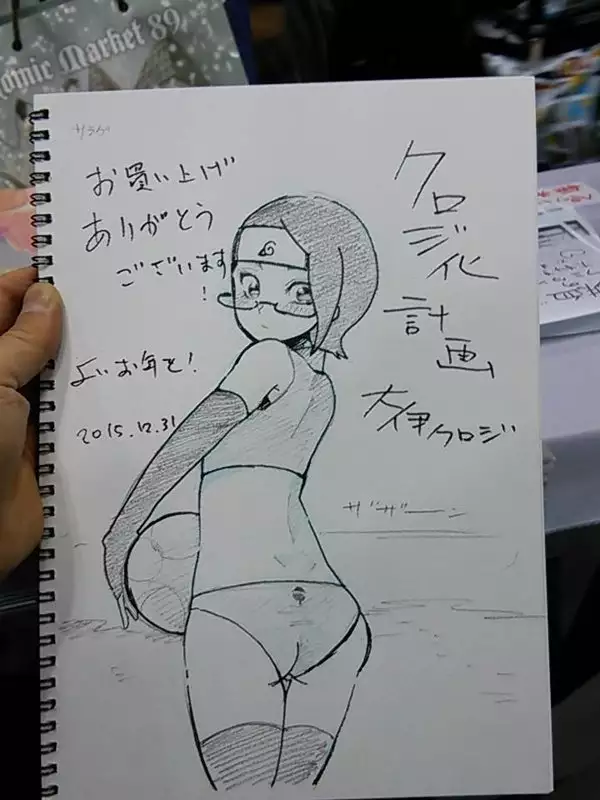 Comic Market 89
サラダ
お買い上げ
ありがとう
ございます
!
よいお年を!
2015.12.31
クロジ化
計画
大伊クロジ
ザザーン